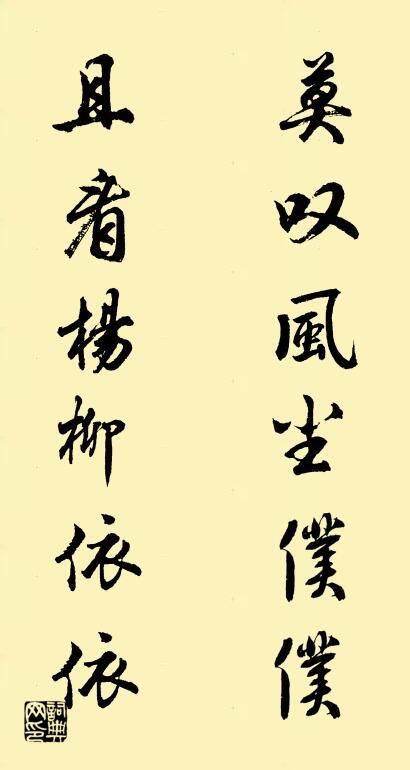 莫叹風尘僕僕
且看楊柳依依
詞典网印